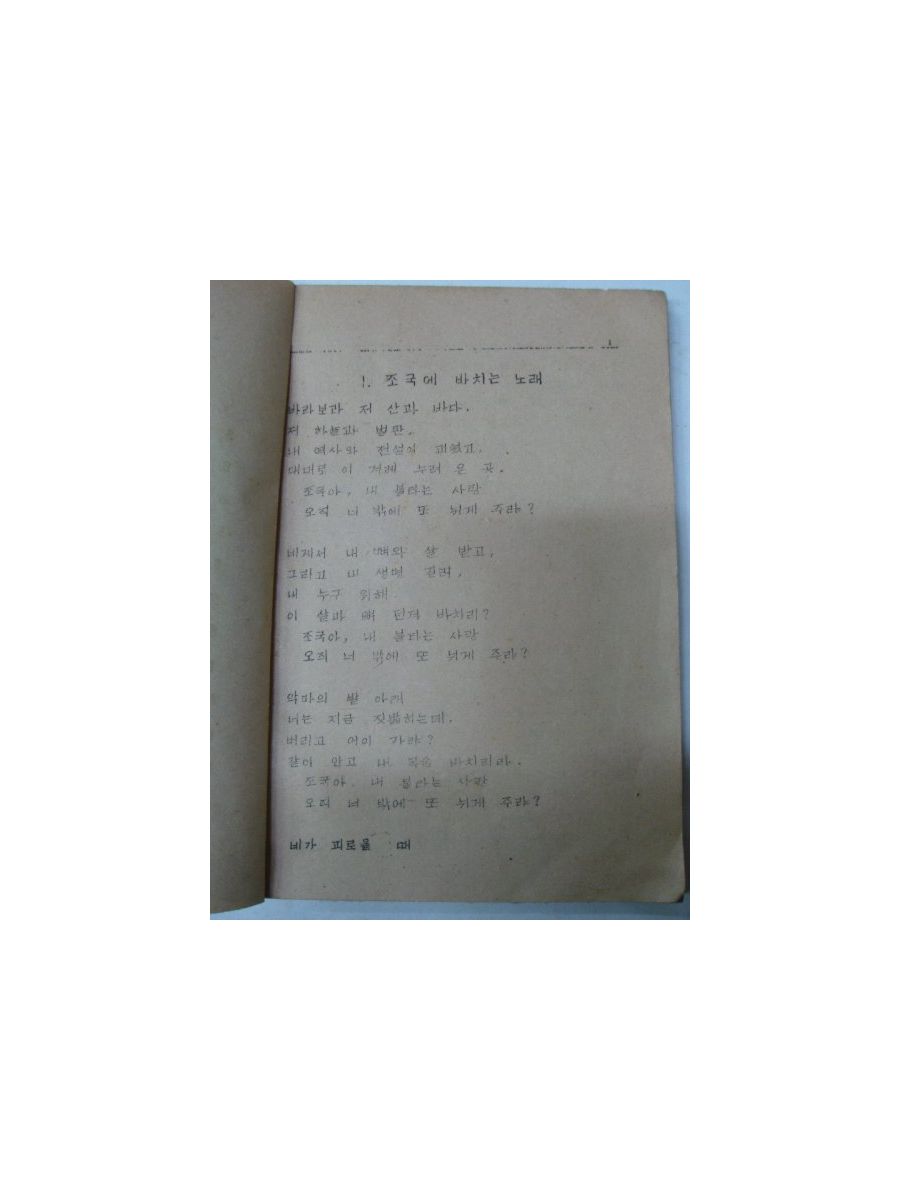 1
1. 조국에 바치는 노래
바라보라 저 산과 바다.
저 하늘과 벌판.
내 역사와 전설이
대대로 이 겨레 누려 온 곳.
조국아, 내 불타는 사랑
오직 너 밖에 또 뉘게 주랴?
네게서 내 뼈와 살 받고,
그리고 내 생명 길러,
내 누구 위해
이 살과 뼈 던져 바치리?
조국아, 내 불타는 사랑
오직 너 밖에 또 뉘게 주랴?
악마의 발 아래
너는 지금 짓밟히는데,
버리고 어이 가랴?
같이 안고 내 목숨 바치리라.
조국아, 내 불타는 사랑
오직 너 밖에 또 뉘게 주랴?
네가 피로울 때